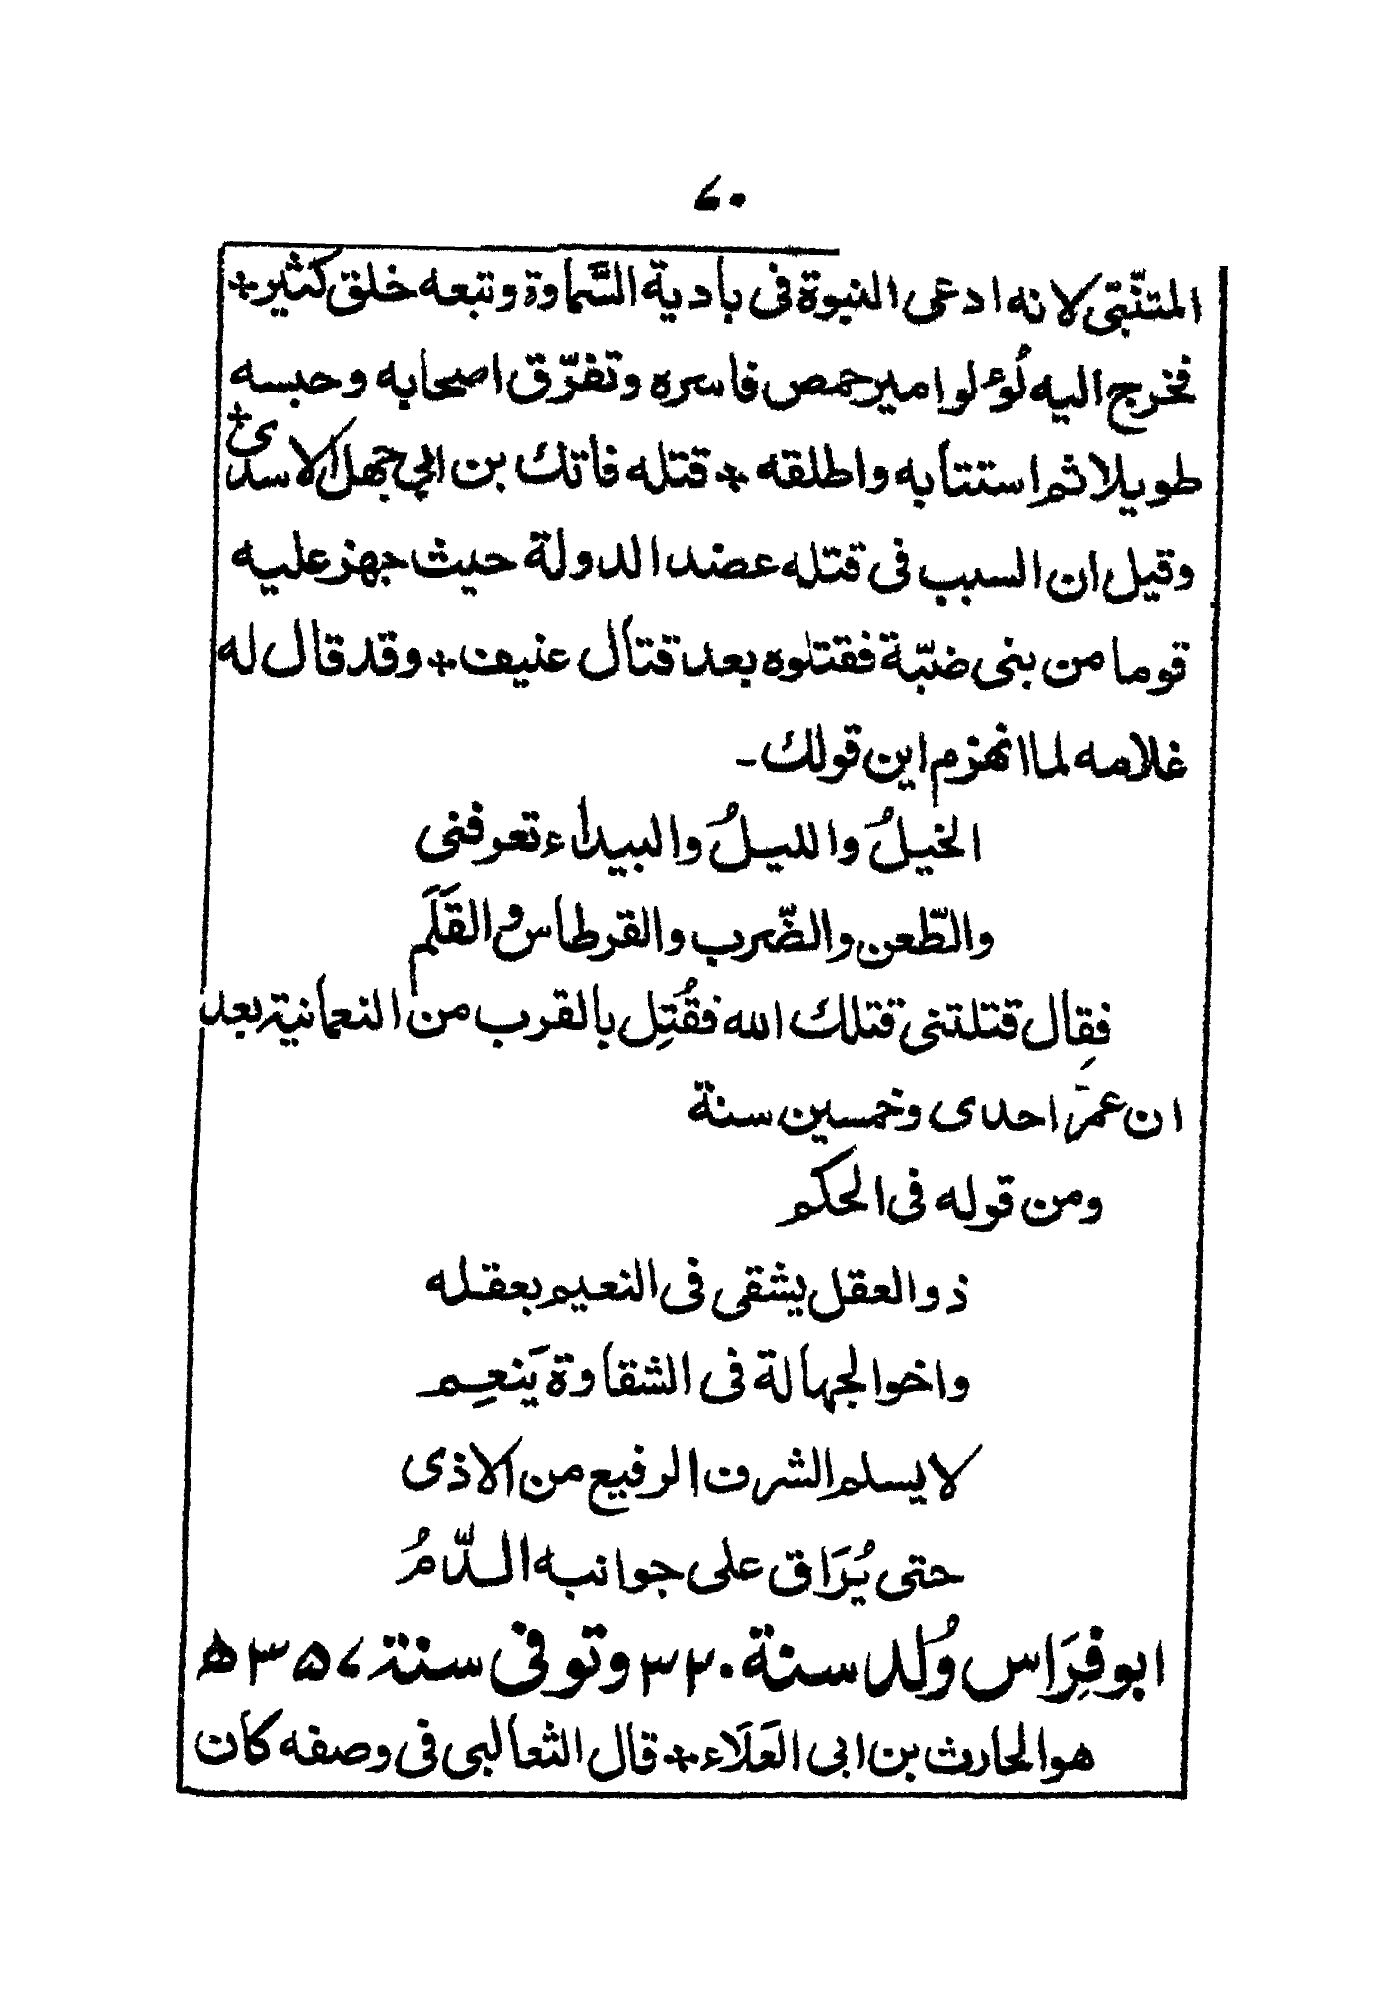 ۷۰
المتنبّی لانه ادعی النبوة فی بادیة السَّماوة وتبعه خلق کثیر+
فخرج الیه لُوٴلوا میر حمص فاسره وتفرّق اصحابه وحبسه
طویلا ثم استتابه واطلقه + قتله فاتك بن ابی جهل الاسدی+
وقیل ان السبب فی قتله عضد الدولة حیث جهز علیه
قوما من بنی ضبّة فقتلوه بعد قتال عنیف + وقد قال له
غلامه لما انهزم این قولك ـ
الخیلُ واللیلُ والبیداء تعرفنی
والطّعن والضّرب والقرطاس والقَلَم
فقال قتلتنی قتلك الله فقُتِل بالقرب من النعمانیة بعد
ان عمرّ احدی وخمسین سنة
ومن قوله فی الحکم
ذوالعقل یشقی فی النعیم بعقله
واخوالجهالة فی الشقاوة یَنعِم
لا یسلم الشرف الرفیع من الاذی
حتی یُرَاق علی جوانبه الدّمُ
ابوفِرَاس وُلد سنة ۳۲۰ وتوفی سنة ۳۵۷ھ
هوالحارث بن ابی العَلَاء + قال الثعالبی فی وصفه کان